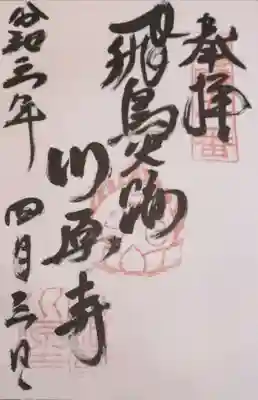 奉拝
飛鳥
川原寺
令和三年
四月三日